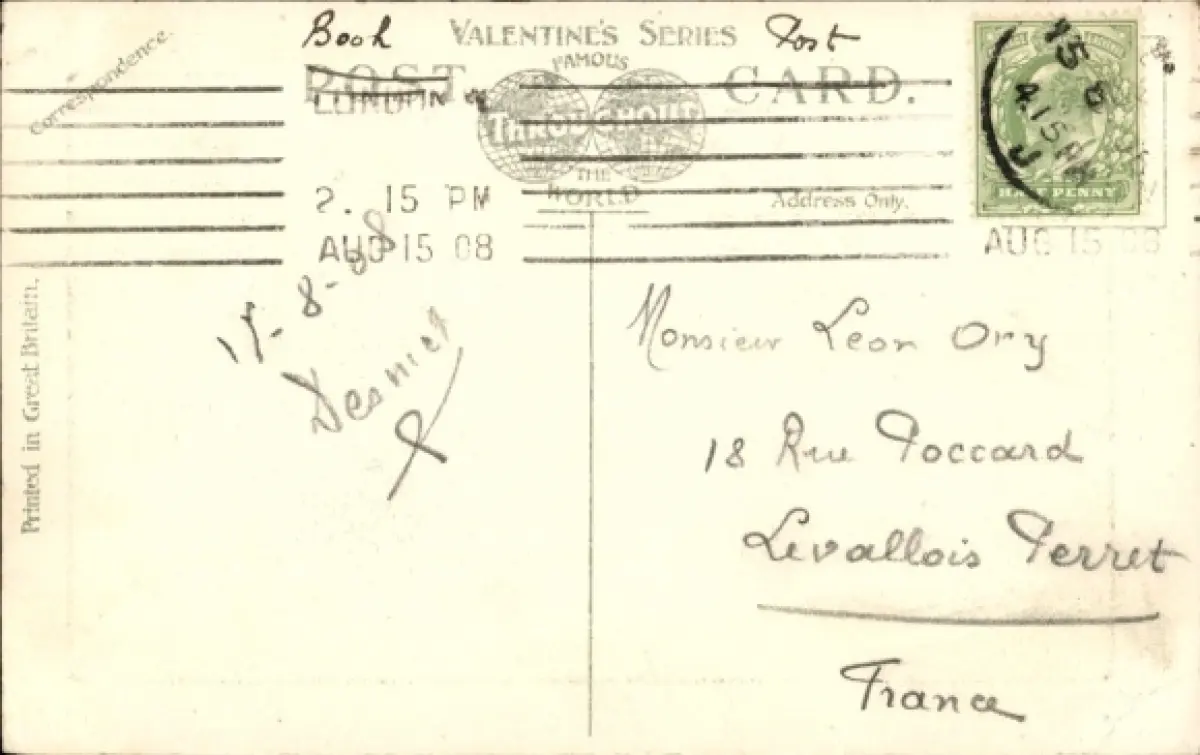 Correspondence.
Book VALENTINE'S SERIES Post
FAMOUS
POST CARD.
LONDON
THROUGHOUT
THE
WORLD
Address Only.
HALF PENNY
2. 15 PM
AUG 15 08
AUG 15 08
4.15 PM
15-8-08
Printed in Great Britain.
Monsieur Leon Ory
18 Rue Poccard
Levallois Perret
France